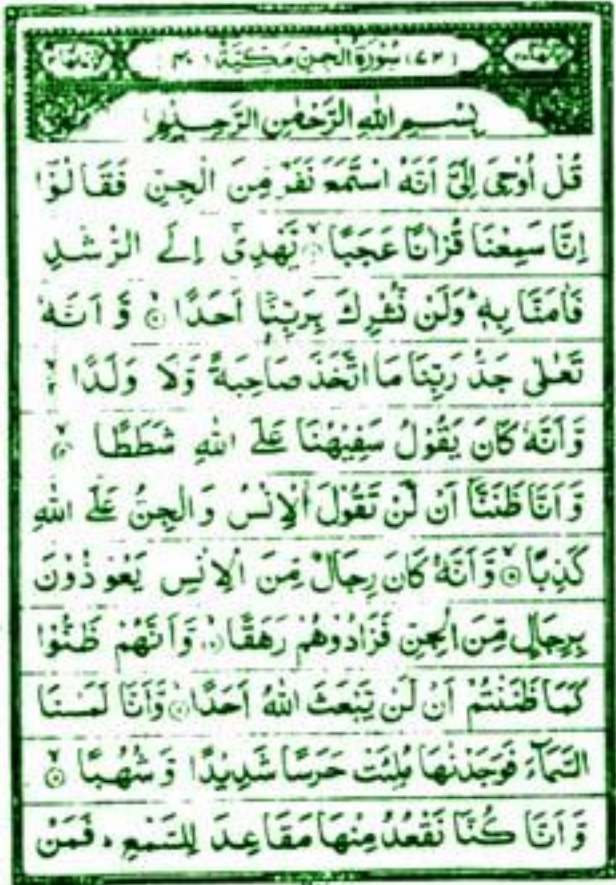 (۷۲) سُوْرَةُ الْجِنِّ مَكِّيَّةٌ
بِسْمِ اللهِ الرَّحْمٰنِ الرَّحِيْمِ
قُلْ اُوْحِىَ اِلَىَّ اَنَّهُ اسْتَمَعَ نَفَرٌ مِّنَ الْجِنِّ فَقَالُوْۤا
اِنَّا سَمِعْنَا قُرْاٰنًا عَجَبًا ۙ يَّهْدِىْۤ اِلَى الرُّشْدِ
فَاٰمَنَّا بِهٖ ؕ وَلَنْ نُّشْرِكَ بِرَبِّنَاۤ اَحَدًا ۙ وَّ اَنَّهٗ
تَعٰلٰى جَدُّ رَبِّنَا مَا اتَّخَذَ صَاحِبَةً وَّلَا وَلَدًا ۙ
وَّ اَنَّهٗ كَانَ يَقُوْلُ سَفِيْهُنَا عَلَى اللهِ شَطَطًا ۙ
وَّ اَنَّا ظَنَنَّاۤ اَنْ لَّنْ تَقُوْلَ الْاِنْسُ وَ الْجِنُّ عَلَى اللهِ
كَذِبًا ۙ وَّ اَنَّهٗ كَانَ رِجَالٌ مِّنَ الْاِنْسِ يَعُوْذُوْنَ
بِرِجَالٍ مِّنَ الْجِنِّ فَزَادُوْهُمْ رَهَقًا ۙ وَّ اَنَّهُمْ ظَنُّوْا
كَمَا ظَنَنْتُمْ اَنْ لَّنْ يَّبْعَثَ اللهُ اَحَدًا ۙ وَّ اَنَّا لَمَسْنَا
السَّمَآءَ فَوَجَدْنٰهَا مُلِئَتْ حَرَسًا شَدِيْدًا وَّ شُهُبًا ۙ
وَّ اَنَّا كُنَّا نَقْعُدُ مِنْهَا مَقَاعِدَ لِلسَّمْعِ ؕ فَمَنْ